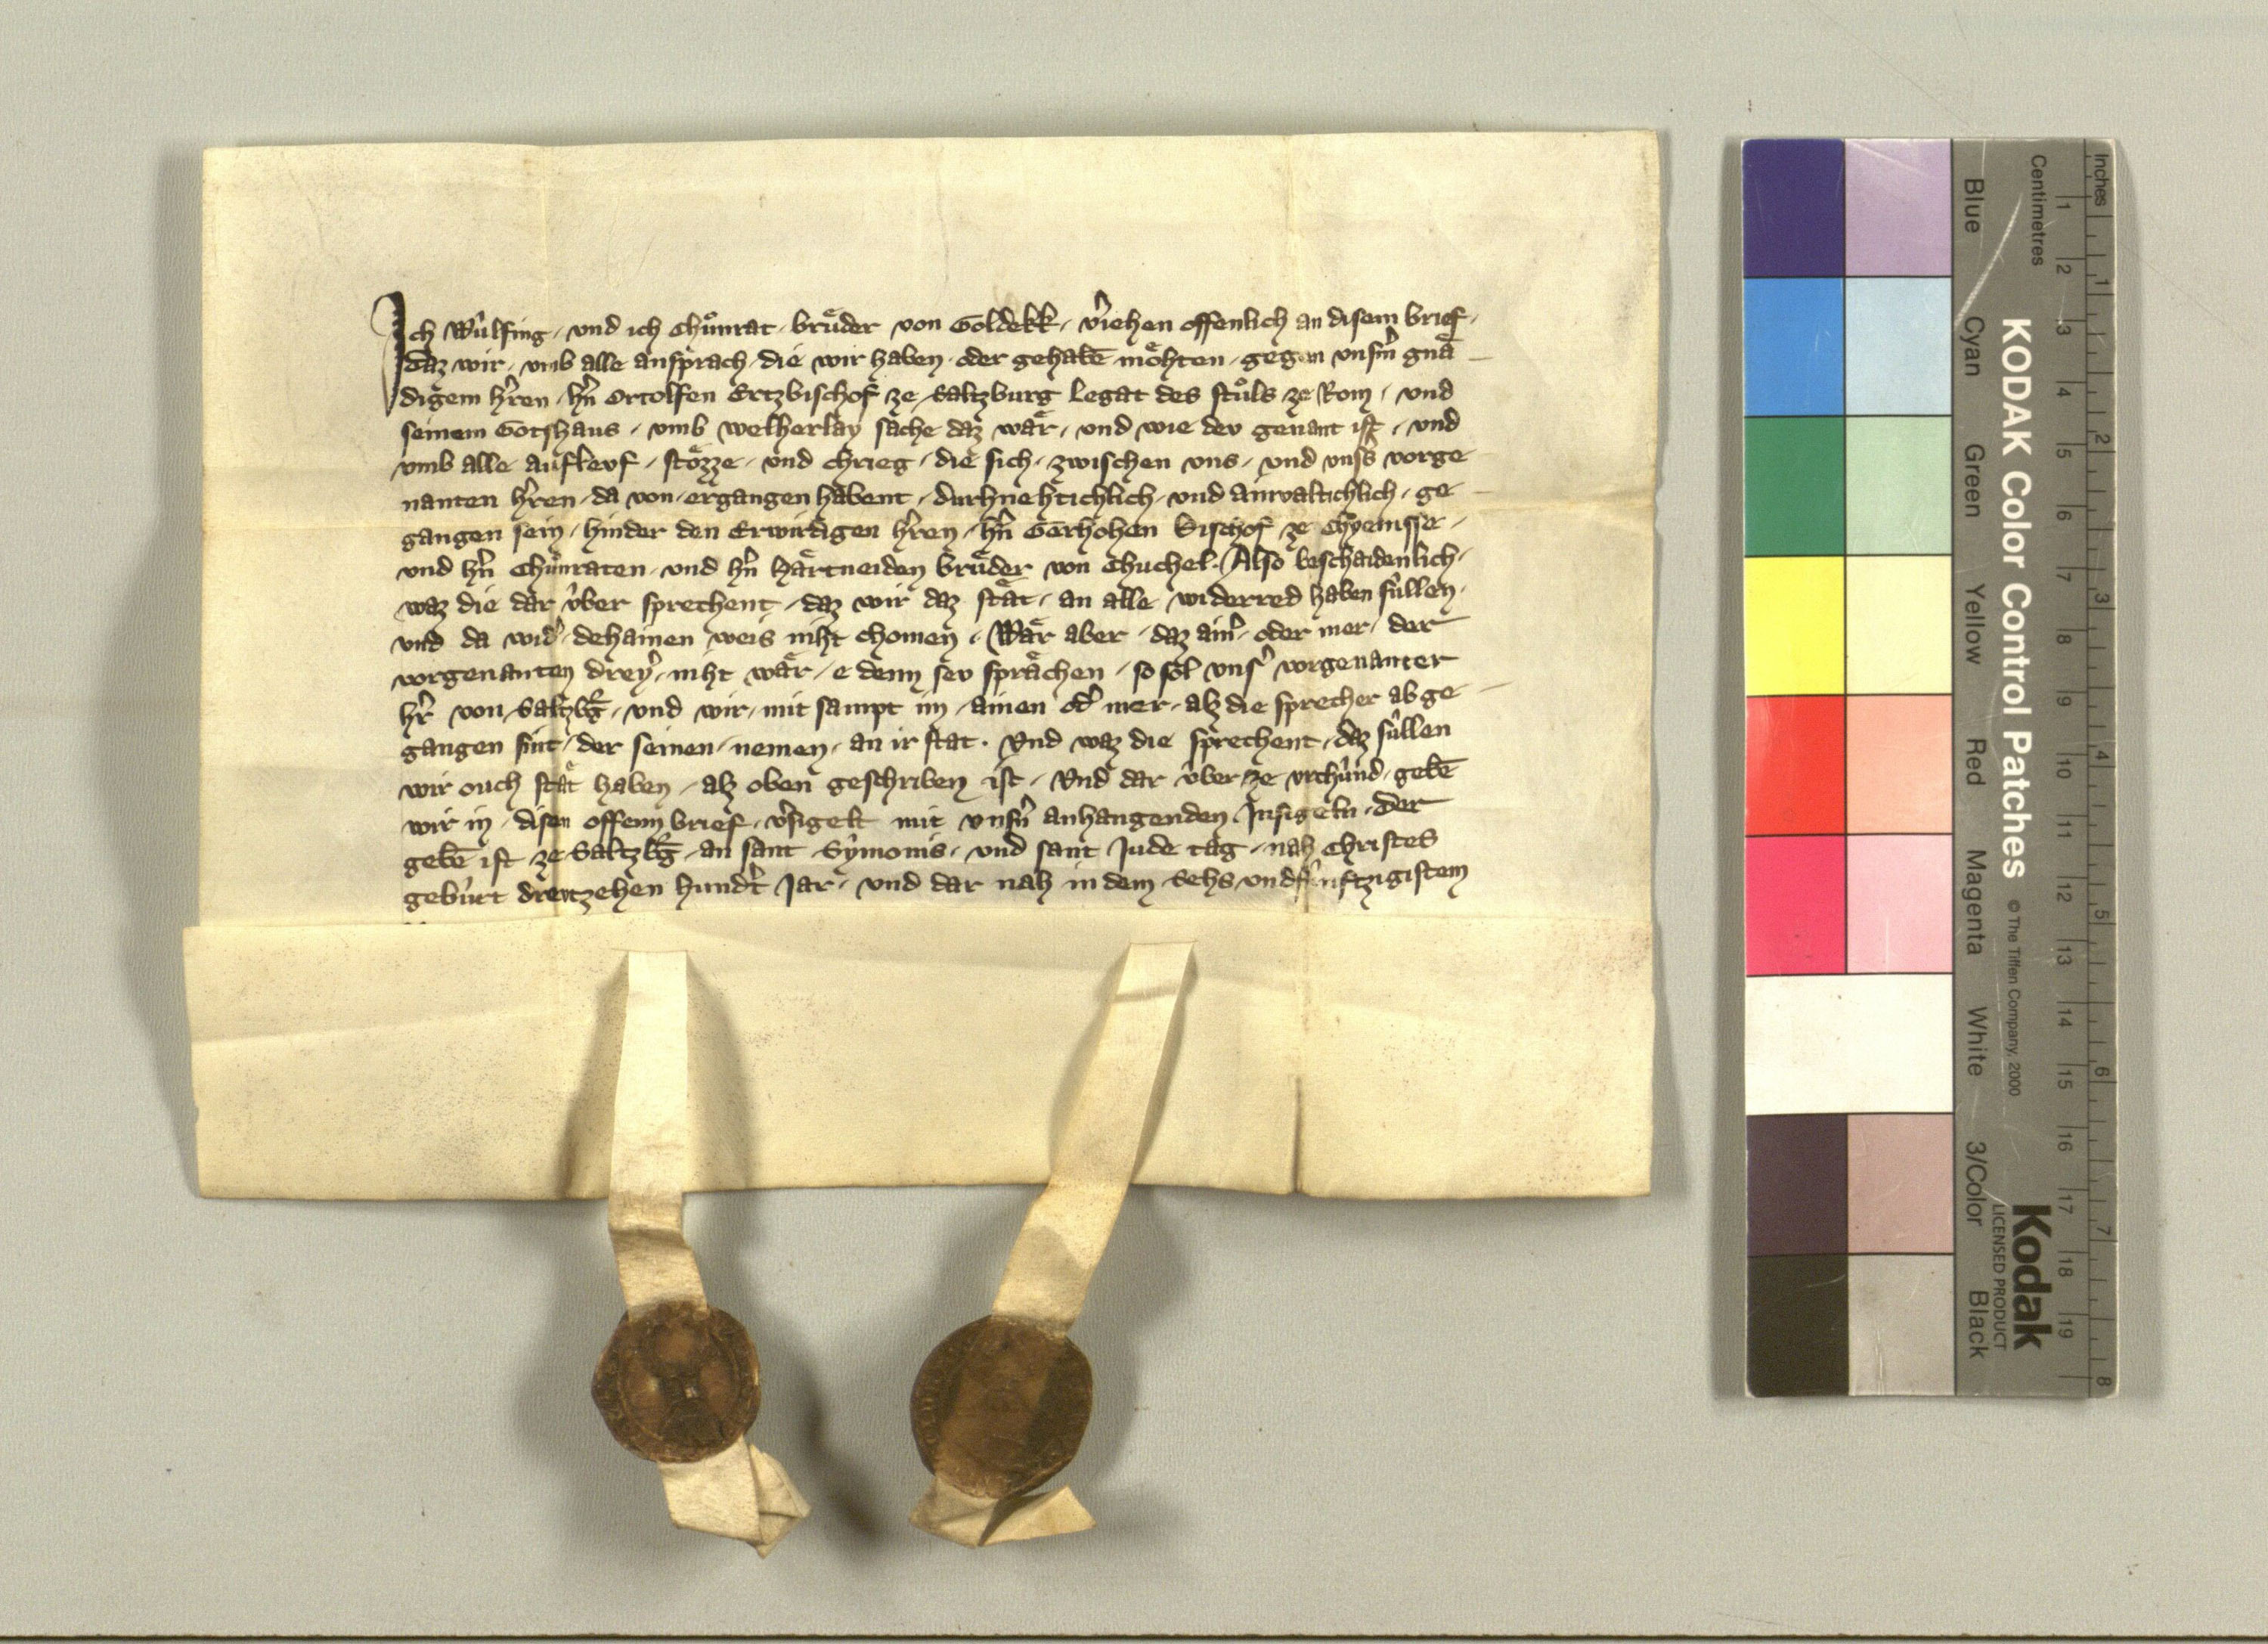 Ich Wuͤlfing · vnd ich Chuͦnrat · bruͤder von Goldekk · v̾iehen offenlich an disem brief ·
daz wir · vmb alle ansprach · die wir haben · oder gehabē moͤhten · gegen vnsm̾ gnaͤ
digem hr̾en · hn̾ Ortolfen Ertzbischof ze Saltzburg Legat des stuͦls ze Rom · vnd
seinem Gotshaus · vmb welherlay sache daz waͤr · vnd wie dev genant ist · vnd
vmb alle aufleuf · stoͤzze · vnd chrieg · die sich · zwischen vns · vnd vnss̾ vorge
nanten hr̾en · da von · ergangen habent · durhnehtichlich · vnd ainvaltichlich · ge
gangen sein · hinder den Erwirdigen hr̾en · hn̾ Gerhohen Bischof ze Chyemsse ·
vnd hn̾ Chuͦnraten · vnd hn̾ Haͤrtneiden bruͤder von Chuchel · Also beschaidenlich ·
waz die dar vͤber sprechent · daz wir daz staͤt · an alle widerred haben suͤllen ·
vnd da wid̾ · dehainen weis niht chomen · Waͤr aber · daz ainr̾ · oder mer · der
vorgenanten drey̾ · niht waͤr · e denn sev spraͤchen · so sol vns̾ vorgenanter
hr̾ von Saltzbg̾ · vnd wir · mit sampt im · ainen od̾ mer · alz die sprecher abge
gangen sint · der seinen · nemen · an ir stat · Vnd waz die sprechent · daz suͤllen
wir ouch staͤt haben · alz oben geschriben ist · Vnd dar vͤber ze vrchuͤnd · gebē
wir in · disen offenn brief · v̾sigelt mit vnsn̾ anhangenden Insigeln · der
gebē ist ze Saltzbg̾ · an sant Symonis · vnd sant Jude tag · nah Christes
gebuͤrt dreutzehen hundt̾ Jar · vnd dar nah in dem Sehs vnd fuͤnftzigistem
Inches
Centimetres
KODAK Color Control Patches
© The Tiffen Company, 2000
Kodak
LICENSED PRODUCT
Blue Cyan Green Yellow Red Magenta White 3/Color Black
1 2 3 4 5 6 7 8 9 10 11 12 13 14 15 16 17 18 19
1 2 3 4 5 6 7 8